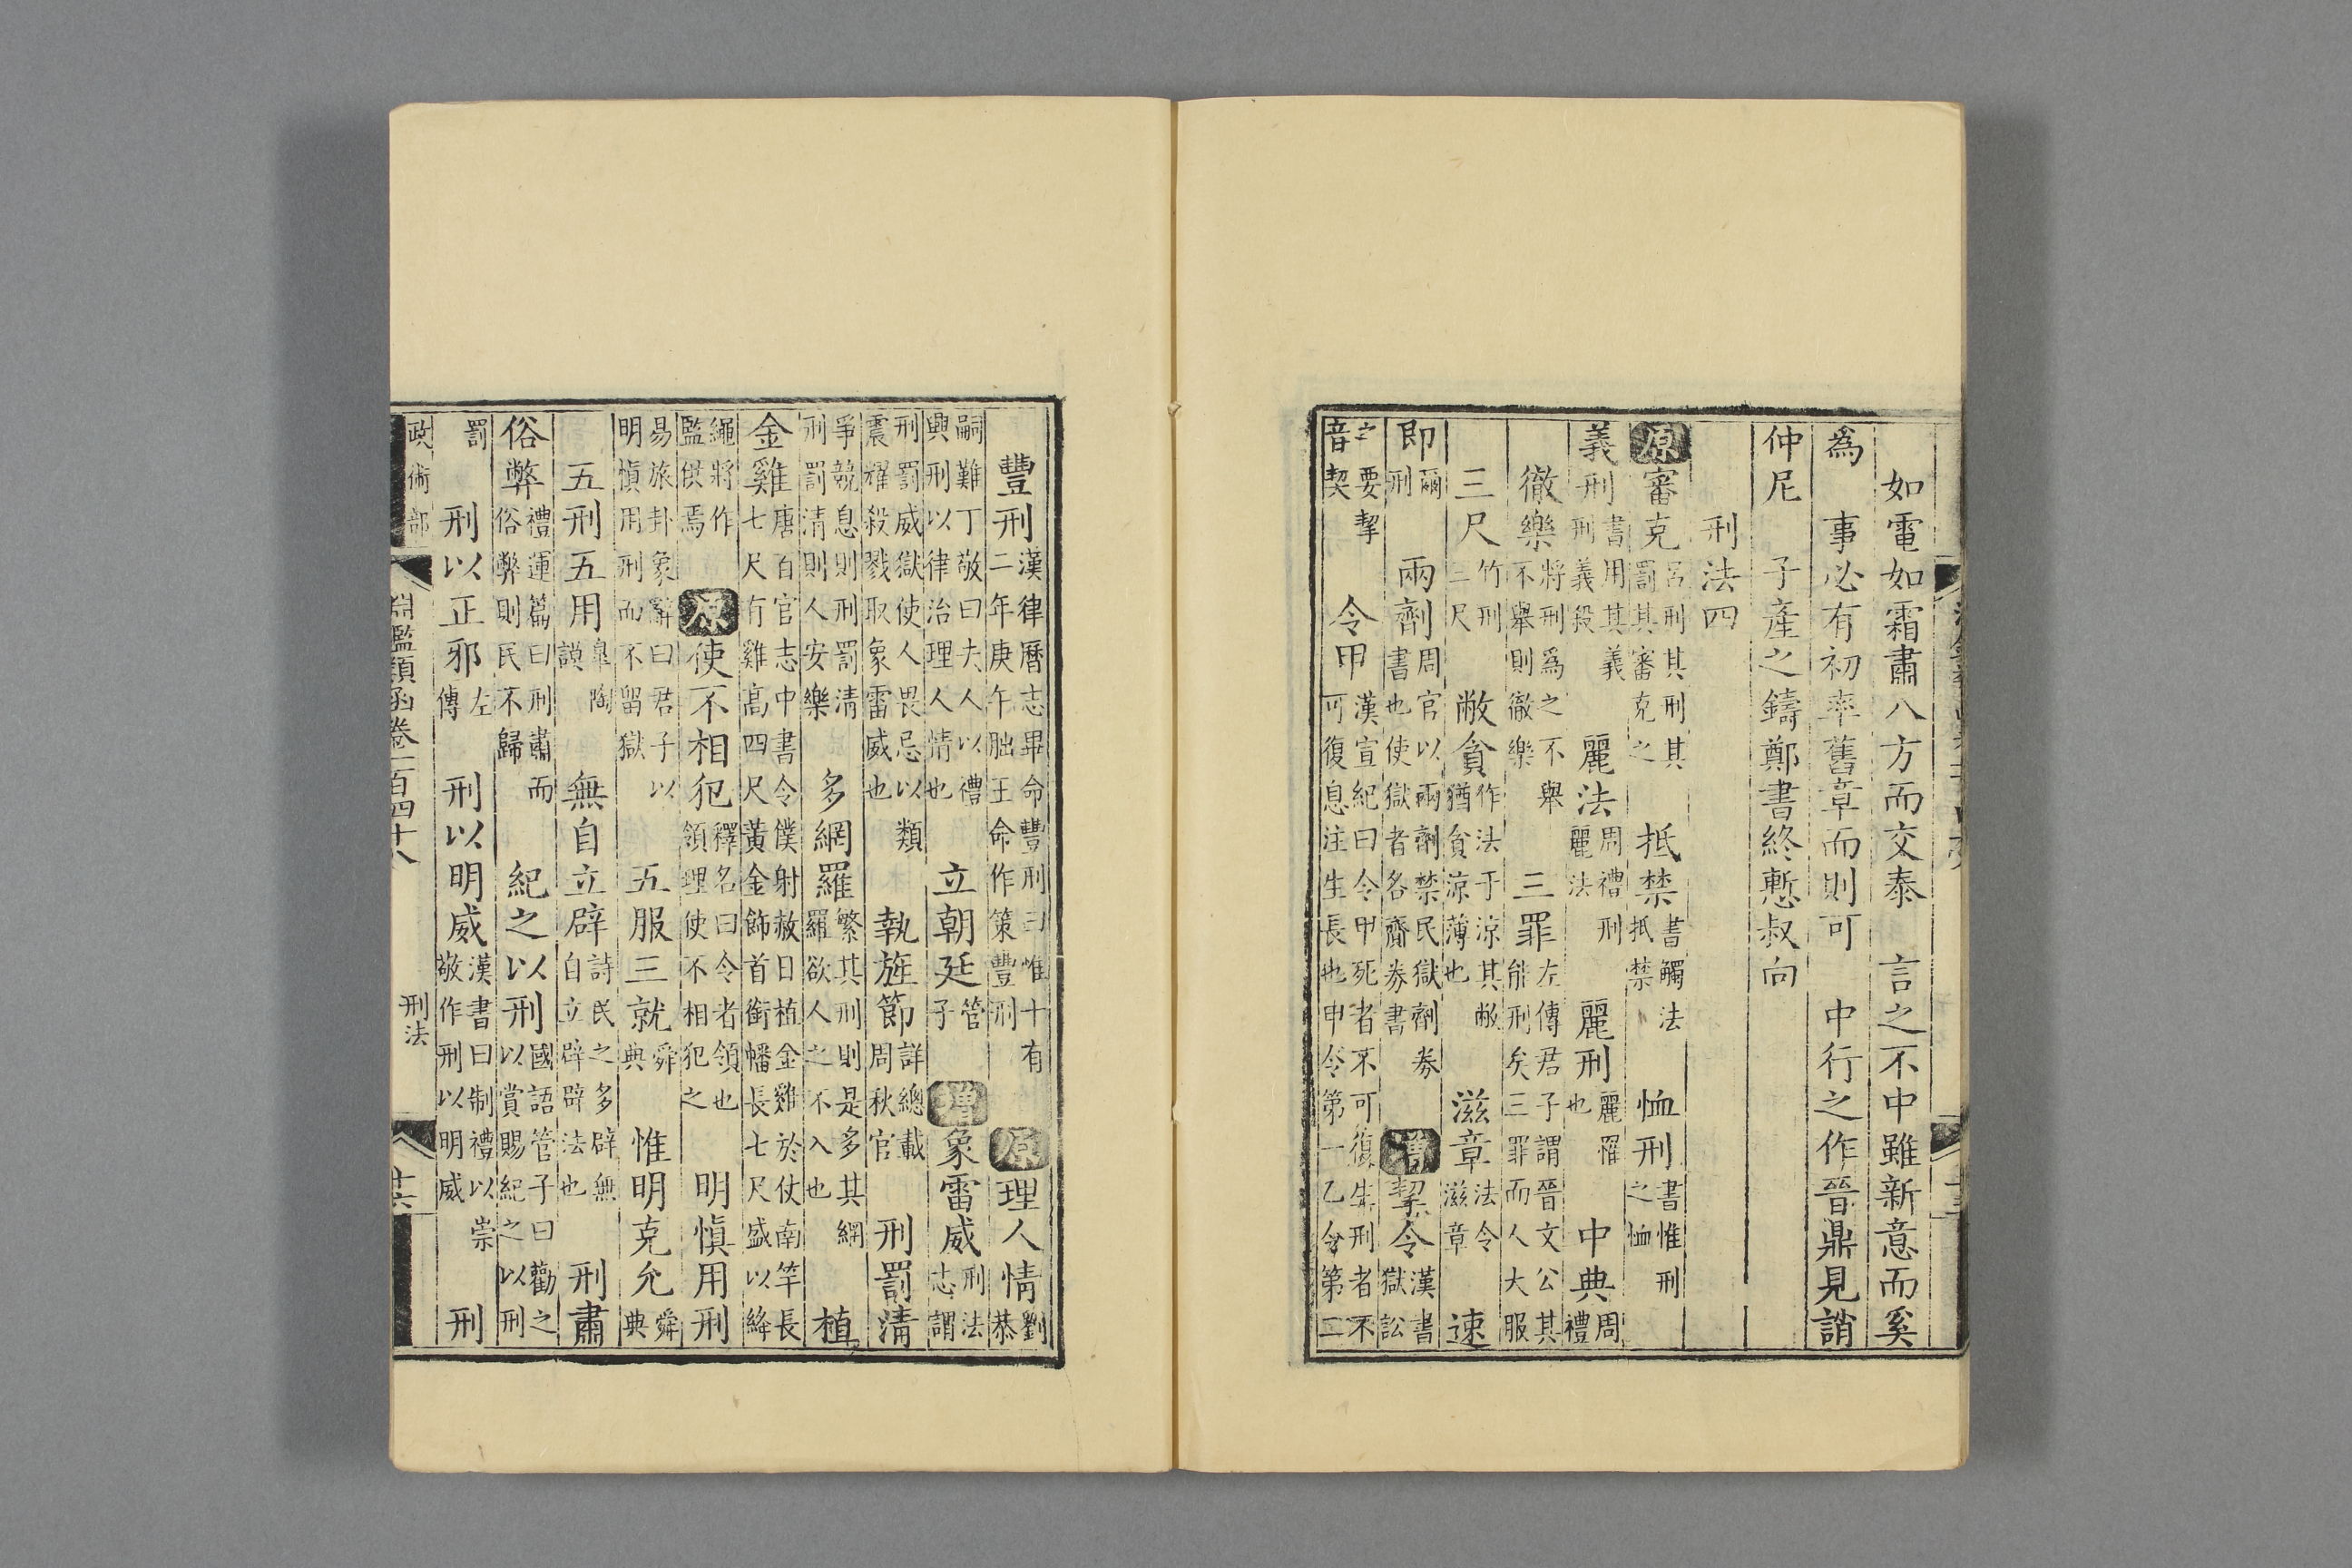 如電如霜肅八方而交泰　言之不中雖新意而奚
爲　事必有初率舊章而則可　中行之作晉鼎見誚
仲尼　子產之鑄鄭書終慙叔向
刑法四
原審克呂刑其刑其罰其審克之　抵禁書觸法抵禁　恤刑書惟刑之恤
義刑書用其義刑義殺　麗法周禮刑麗法　麗刑麗罹也　中典周禮
徹樂將刑爲之不舉不舉則徹樂　三罪左傳君子謂晉文公其能刑矣三罪而人大服
三尺竹刑三尺　敝貪作法于涼其敝猶貪涼薄也　滋章法令滋章　速
即爾刑　兩劑周官以兩劑禁民獄劑券書也使獄者各齎券書　增挈令漢書獄訟
之要挈音契　令甲漢宣紀曰令甲死者不可復生刑者不可復息注生長也申令第一乙令第二不
豐刑漢律曆志畢命豐刑曰惟十有二年庚午朏王命作策豐刑　原理人情劉恭
嗣難丁敬曰夫人以禮興刑以律治理人情也　立朝廷管子　增象雷威刑法志謂
刑罰威獄使人畏忌以類震耀殺戮取象雷威也　執旌節詳總載周秋官　刑罰清
爭競息則刑罰清刑罰清則人安樂　多網羅繁其刑則是多其網羅欲人之不入也　植
金雞唐百官志中書令僕射赦日植金雞於仗南竿長七尺有雞高四尺黃金飾首銜幡長七尺盛以絳
繩將作監供焉　原使不相犯釋名曰令者領也領理使不相犯之　明愼用刑
易旅卦象辭曰君子以明愼用刑而不留獄　五服三就舜典　惟明克允舜典
五刑五用臯陶謨　無自立辟詩民之多辟無自立辟辟法也　刑肅
俗弊禮運篇曰刑肅而俗弊則民不歸　紀之以刑國語管子曰勸之以賞賜紀之以刑
罰　刑以正邪左傳　刑以明威漢書曰制禮以崇敬作刑以明威　刑
政術部　淵鑑類函卷一百四十八　刑法　十六